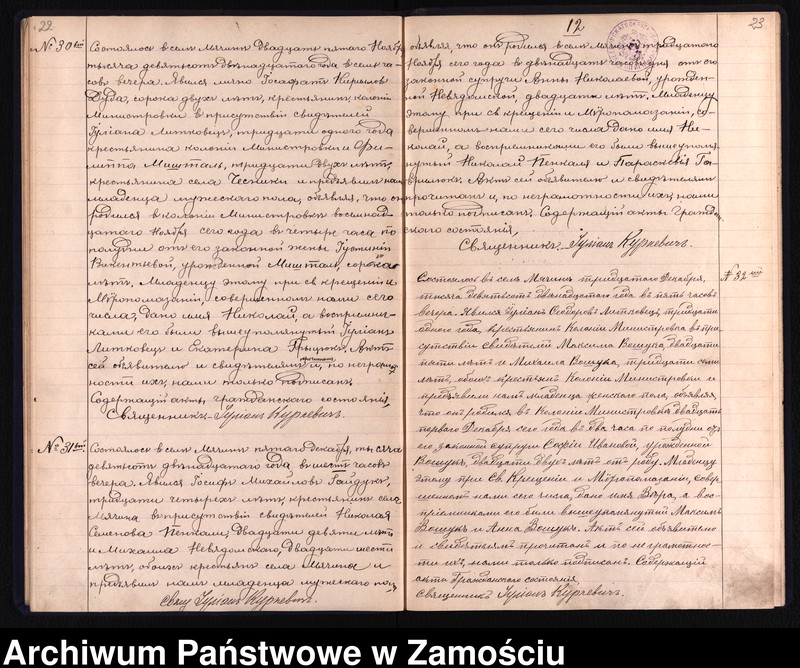 22
№ 30ый Состоялось в селе Мячин двадцать пятого Ноября
тысяча девятьсот двенадцатого года в семь ча-
сов вечера. Явился лично Иосафат Кирилов
Дуда, сорока двух лет, крестьянин колонии
Министровки в присутствии свидетелей
Гулiана Литковец, тридцати одного года
крестьянина колонии Министровки и Фи-
липпа Мишталь, тридцати двух лет,
крестьянина села Чесники и предъявил нам
младенца мужеского пола, объявляя, что он
родился в колонии Министровке восемнад-
цатого Ноября сего года в четыре часа по
полудни от его законной жены Iустинiи
Викентьевой, урожденной Мишталь, сорока
лет. Младенцу этому при св крещении и
Мѵропомазании, совершенном нами сего
числа, дано имя Николай, а восприемни-
ками его были вышеупомянутый Гулiан
Литковец и Екатерина Грыцюк. Акт
сей объявителю и свидетелям и, по неграмот-
ности их, нами только подписан.
Содержащий акты гражданского состояния,
Священник Гулiан Куркевич.
№ 31ый Состоялось в селе Мячин пятого Декабря, тысяча
девятьсот двенадцатого года, в шесть часов
вечера. Явился Iосиф Михайлов Гайдук,
тридцати четырех лет, крестьянин села
Мячина в присутствии свидетелей Николая
Семенова Пенкали, двадцати девяти лет
и Михаила Невядомского, двадцати шести
лет, обоих крестьян села Мячина и
предъявил нам младенца мужеского пола,
Свящ Гулiан Куркевич.
12
23
объявляя, что он родился в селе Мячин тридцатого
Ноября сего года в двенадцать часов дня от его
законной супруги Анны Николаевой, урожден-
ной Невядомской, двадцати лет. Младенцу
этому при св крещении и Мѵропомазании, со-
вершенном нами сего числа дано имя Ни-
колай, а восприемниками его были вышеупомя-
нутый Николай Пенкаля и Параскевiя Га-
врилюк. Акт сей объявителю и свидетелям
прочитан и, по неграмотности их, нами
только подписан. Содержащий акты граждан-
ского состояния,
Священник Гулiан Куркевич.
№ 32ый
Состоялось въ селѣ Мячинъ тридцатого Декабря,
тысяча девятьсотъ двѣнадцатаго года въ пять часовъ
вечера. Явился Гулiанъ Сидоровъ Литковецъ, тридцати
одного года, крестьянинъ Колонiи Министровка въ при-
сутствiи свидѣтелей Максима Вошука, двадцати
пяти лѣтъ и Михаила Вошука, тридцати семи
лѣтъ, обоихъ крестьянъ Колонiи Министровки и
предъявилъ намъ младенца женскаго пола, объявляя,
что онъ родился въ Колонiи Министровкѣ двадцать
перваго Декабря сего года въ два часа по полудни отъ
его законной супруги Софiи Ивановой, урожденной
Вошукъ, двадцати двухъ лѣтъ отъ роду. Младенцу
этому при Св. Крещенiи и Мѵропомазанiи, совер-
шенномъ нами сего числа, дано имя Вѣра, а вос-
прiемниками его были вышеупомянутый Максимъ
Вошукъ и Анна Вошукъ. Актъ сей объявителю
и свидѣтелямъ прочитанъ и по неграмотнос-
ти ихъ, нами только подписанъ. Содержащiй
акты Гражданскаго состоянiя,
Священникъ Гулiанъ Куркевичъ.
Archiwum Państwowe w Zamościu